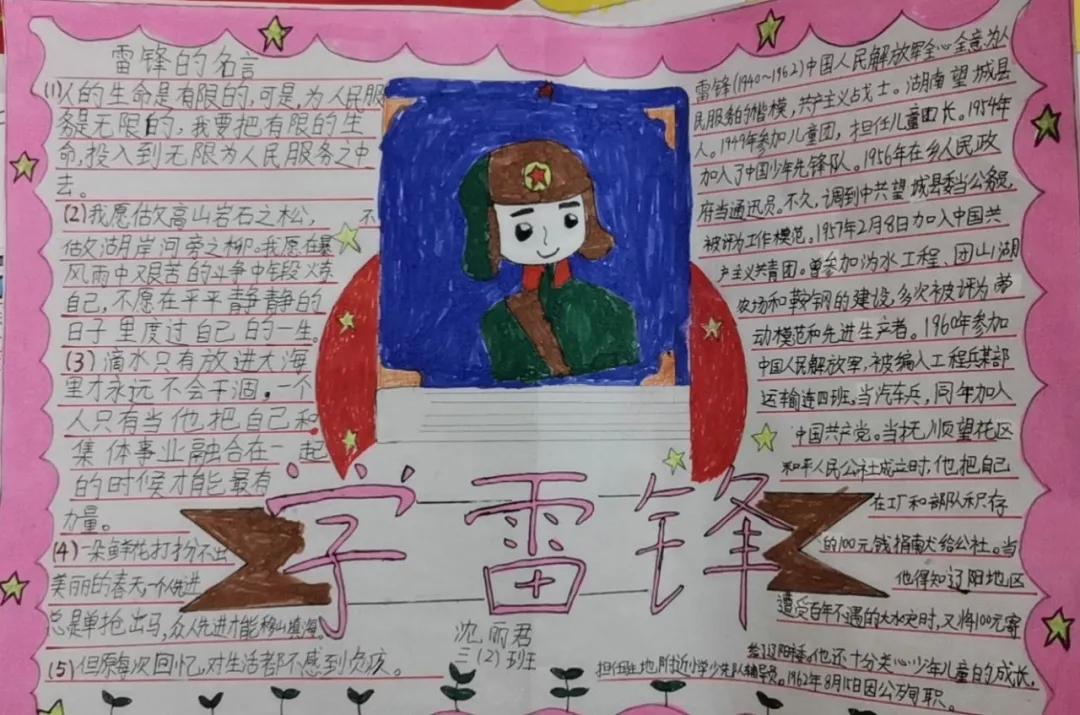 雷锋的名言
(1)人的生命是有限的,可是,为人民服
务是无限的,我要把有限的生
命,投入到无限为人民服务之中
去。
(2)我愿做高山岩石之松, 不
做湖岸河旁之柳。我愿在暴
风雨中艰苦的斗争中锻炼
自己,不愿在平平静静的
日子里度过自己的一生。
(3)滴水只有放进大海
里才永远不会干涸,一个
人只有当他把自己和
集体事业融合在一起
的时候才能最有
力量。
(4)一朵鲜花打扮不出
美丽的春天,一个人先进
总是单抢出马,众人先进才能移山填海。
(5)但愿每次回忆,对生活都不感到负疚。
雷锋(1940~1962)中国人民解放军全心全意为人
民服务的楷模,共产主义战士。湖南望城县
人。1949年参加儿童团,担任儿童团长。1954年
加入了中国少年先锋队。1956年在乡人民政
府当通迅员。不久,调到中共望城县委当公务员,
被评为工作模范。1957年2月8日加入中国共
产主义共青团。曾参加沩水工程、团山湖
农场和鞍钢的建设,多次被评为劳
动模范和先进生产者。1960年参加
中国人民解放军,被编入工程兵某部
运输连四班,当汽车兵,同年加入
中国共产党。当抚顺望花区
和平人民公社成立时,他把自己
在工厂和部队积存
的100元钱捐献给公社。当
他得知辽阳地区
遭受百年不遇的大水灾时,又将100元寄
给了辽阳。他还十分关心少年儿童的成长,
担任驻地附近小学少先队辅导员。1962年8月15日因公殉职。
学雷锋
沈丽君
三(2)班